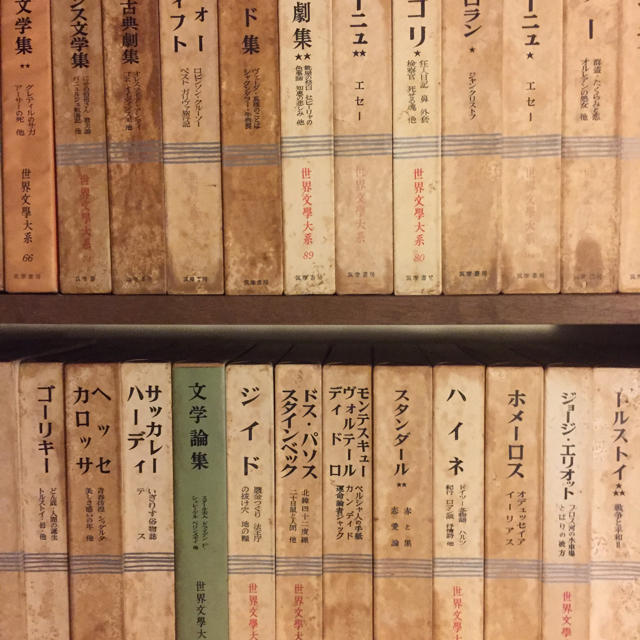 文学集★★
グレティルのサガ
アーサーの死 他
世界文學大系
66
筑摩書房
ンス文学集
世界文學大系
古典劇集
ォー
ィフト
ロビンソン・クルーソー
ペスト ガリヴァ旅行記
筑摩書房
ド集
筑摩書房
劇集★★
世界文學大系
89
筑摩書房
ーニュ★★
エセー
世界文學大系
筑摩書房
ゴリ★
狂人日記 鼻 外套
検察官 死せる魂 他
世界文學大系
80
筑摩書房
ロラン★
ジャン・クリストフ
筑摩書房
ーニュ★
エセー
筑摩書房
ー
オルレアンの処女 他
筑摩書房
ゴーリキー
どん底 人間の誕生
トルストイ 他
ヘッセ
カロッサ
美しき惑いの年 他
サッカレー
ハーディ
いぎりす俗物誌
テス
文学論集
世界文學大
ジイド
贋金つくり 法王庁
の抜け穴 地の糧
世界文學大
ドス・パソス
スタインベック
北緯四十二度線
二十日鼠と人間 他
世界文學大
モンテスキュー
ヴォルテール
ディドロ
ペルシャ人の手紙
カンディード
運命論者ジャック
スタンダール★★
赤と黒
恋愛論
ハイネ
紀行 ロマン派 抒情詩 他
世界文學大
ホメーロス
オデュッセイア
イーリアス
ジョージ・エリオット
フロス河の水車場
とばりの彼方
世界文學大
トルストイ★★
戦争と平和 II